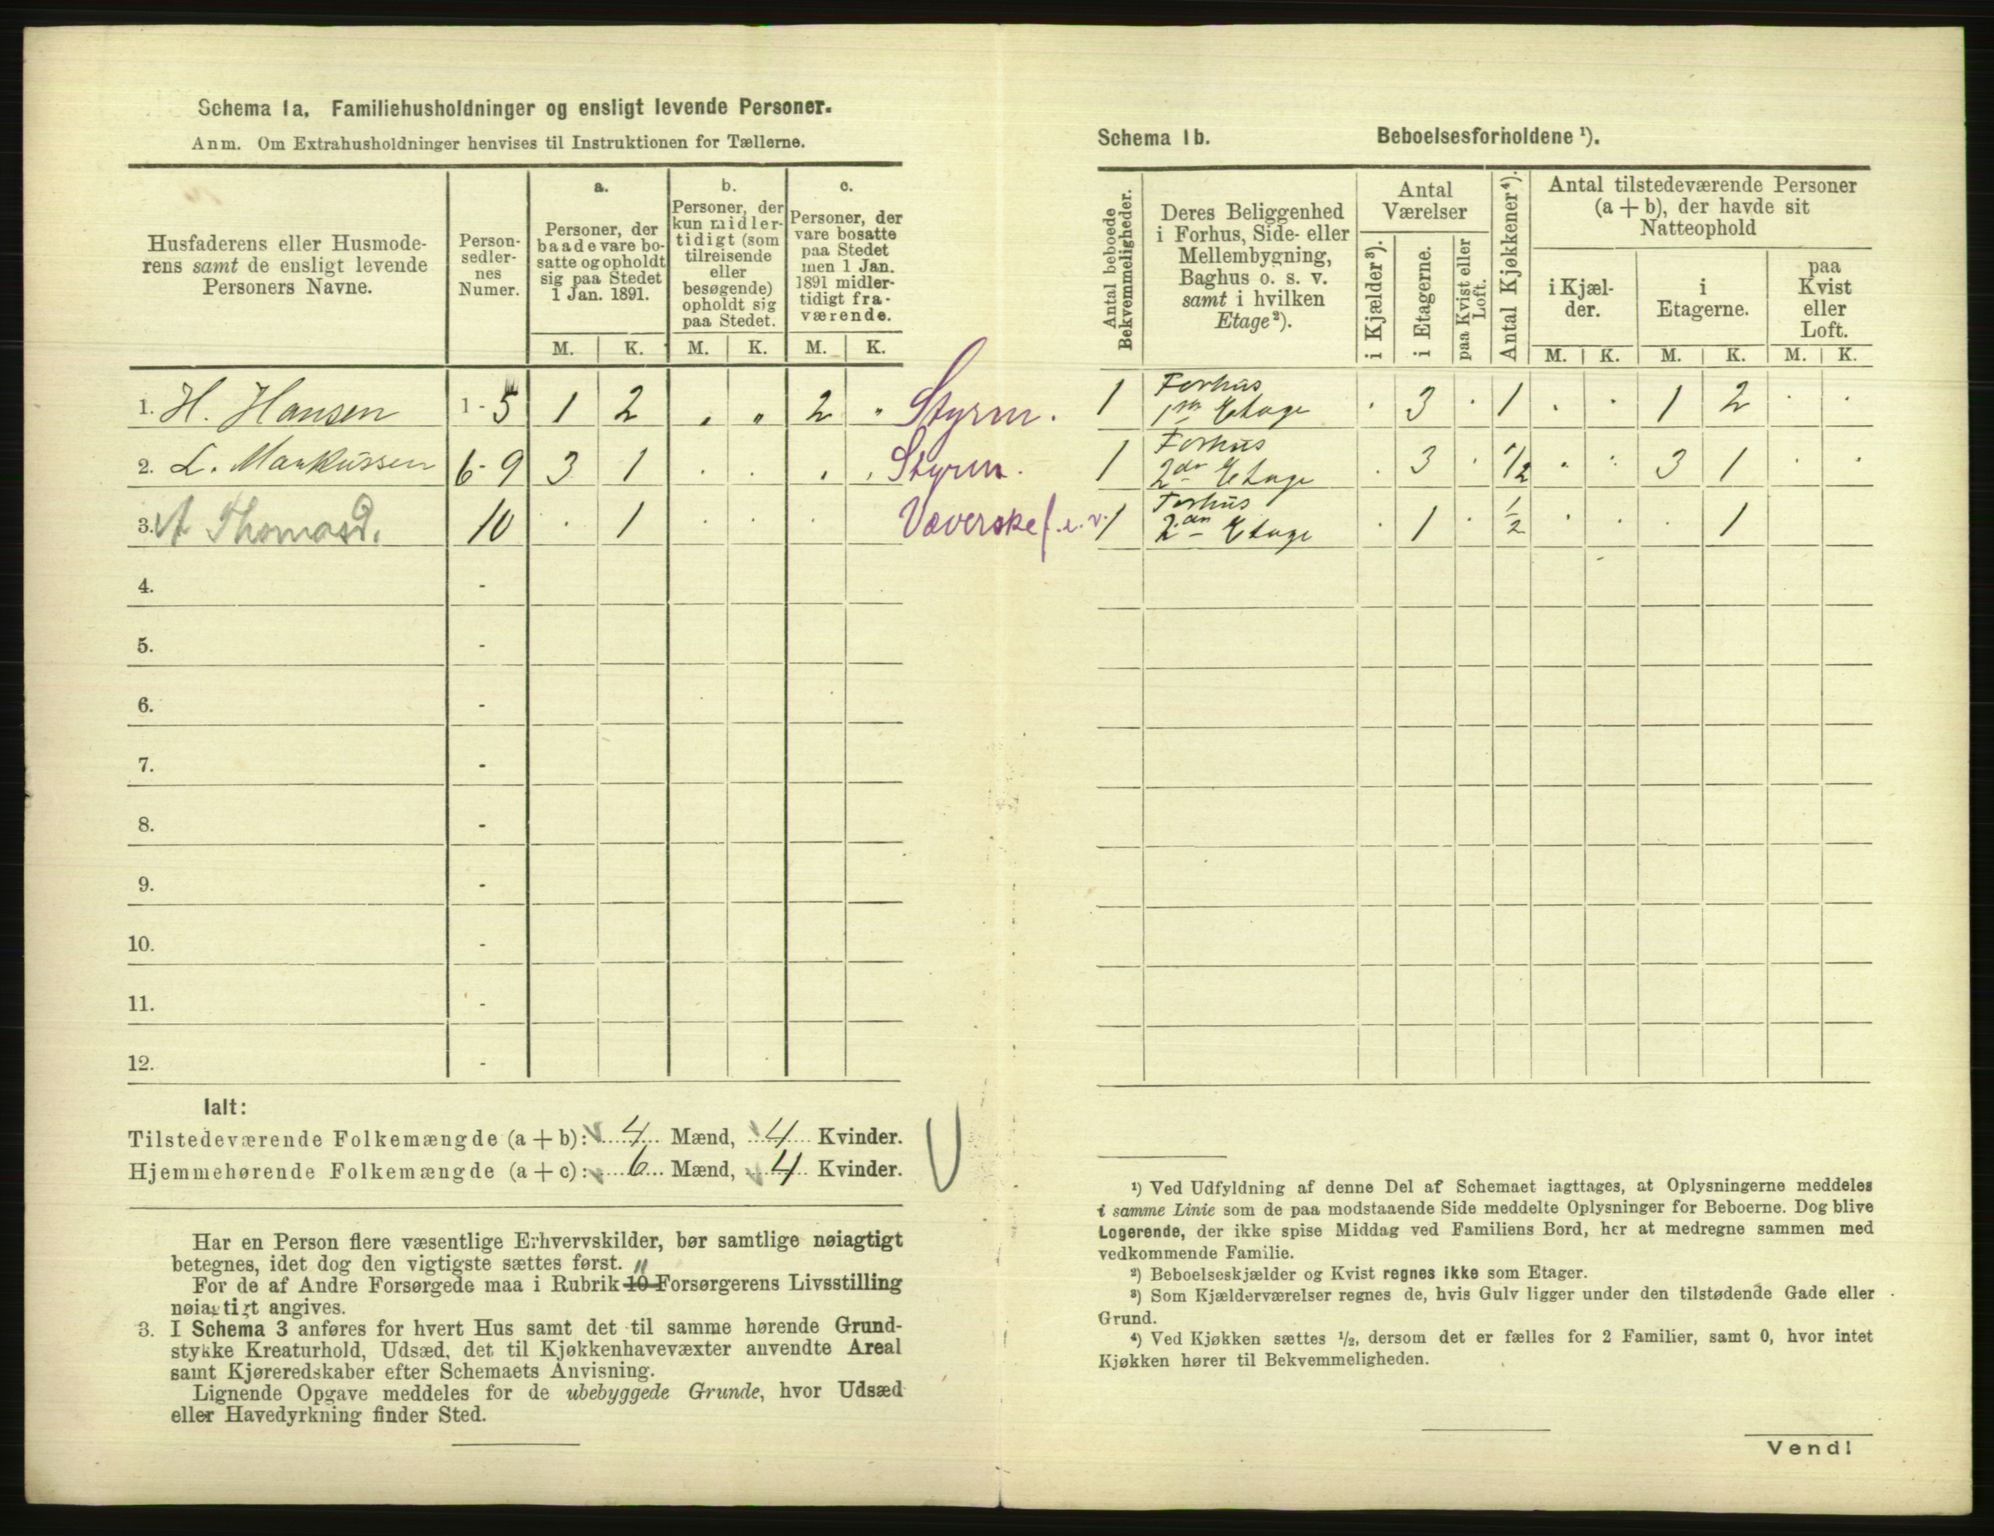 Schema 1a. Familiehusholdninger og ensligt levende Personer.
Anm. Om Extrahusholdninger henvises til Instruktionen for Tællerne.
Husfaderens eller Husmode-
rens samt de ensligt levende
Personers Navne.
Person-
sedler-
nes
Numer.
a.
Personer, der
baade vare bo-
satte og opholdt
sig paa Stedet
1 Jan. 1891.
b.
Personer, der
kun midler-
tidigt (som
tilreisende
eller
besøgende)
opholdt sig
paa Stedet.
c.
Personer, der
vare bosatte
paa Stedet
men 1 Jan.
1891 midler-
tidigt fra-
værende.
M. K. M. K. M. K.
1. H. Hansen 1-5 1 2 „ „ 2 „ Styrm.
2. L. Markussen 6-9 3 1 . . . . Styrm.
3. A Thomasd. 10 . 1 . . . Væverske f. e. v.
4. -
5. -
6. -
7. -
8. -
9. -
10. -
11. -
12. -
Ialt:
Tilstedeværende Folkemængde (a + b): 4 Mænd, 4 Kvinder.
Hjemmehørende Folkemængde (a + c): 6 Mænd, 4 Kvinder.
Har en Person flere væsentlige Erhvervskilder, bør samtlige nøiagtigt
betegnes, idet dog den vigtigste sættes først.
For de af Andre Forsørgede maa i Rubrik 10 11 Forsørgerens Livsstilling
nøiagtigt angives.
3. I Schema 3 anføres for hvert Hus samt det til samme hørende Grund-
stykke Kreaturhold, Udsæd, det til Kjøkkenhavevæxter anvendte Areal
samt Kjøreredskaber efter Schemaets Anvisning.
Lignende Opgave meddeles for de ubebyggede Grunde, hvor Udsæd
eller Havedyrkning finder Sted.
Schema 1b. Beboelsesforholdene ¹).
Antal beboede
Bekvemmeligheder.
Deres Beliggenhed
i Forhus, Side- eller
Mellembygning,
Baghus o. s. v.
samt i hvilken
Etage²).
Antal
Værelser
i Kjælder³).
i Etagerne.
paa Kvist eller
Loft.
Antal Kjøkkener⁴).
Antal tilstedeværende Personer
(a + b), der havde sit
Natteophold
i Kjæl-
der.
i
Etagerne.
paa
Kvist
eller
Loft.
M. K. M. K. M. K.
1 Forhus
1ste Etage . 3 . 1 . . 1 2 . .
1 Forhus
2den Etage . 3 . 1/2 . . 3 1 . .
1 Forhus
2den Etage . 1 . 1/2 . . . 1
¹) Ved Udfyldning af denne Del af Schemaet iagttages, at Oplysningerne meddeles
i samme Linie som de paa modstaaende Side meddelte Oplysninger for Beboerne. Dog blive
Logerende, der ikke spise Middag ved Familiens Bord, her at medregne sammen med
vedkommende Familie.
²) Beboelseskjælder og Kvist regnes ikke som Etager.
³) Som Kjælderværelser regnes de, hvis Gulv ligger under den tilstødende Gade eller
Grund.
⁴) Ved Kjøkken sættes ½, dersom det er fælles for 2 Familier, samt 0, hvor intet
Kjøkken hører til Bekvemmeligheden.
Vend!